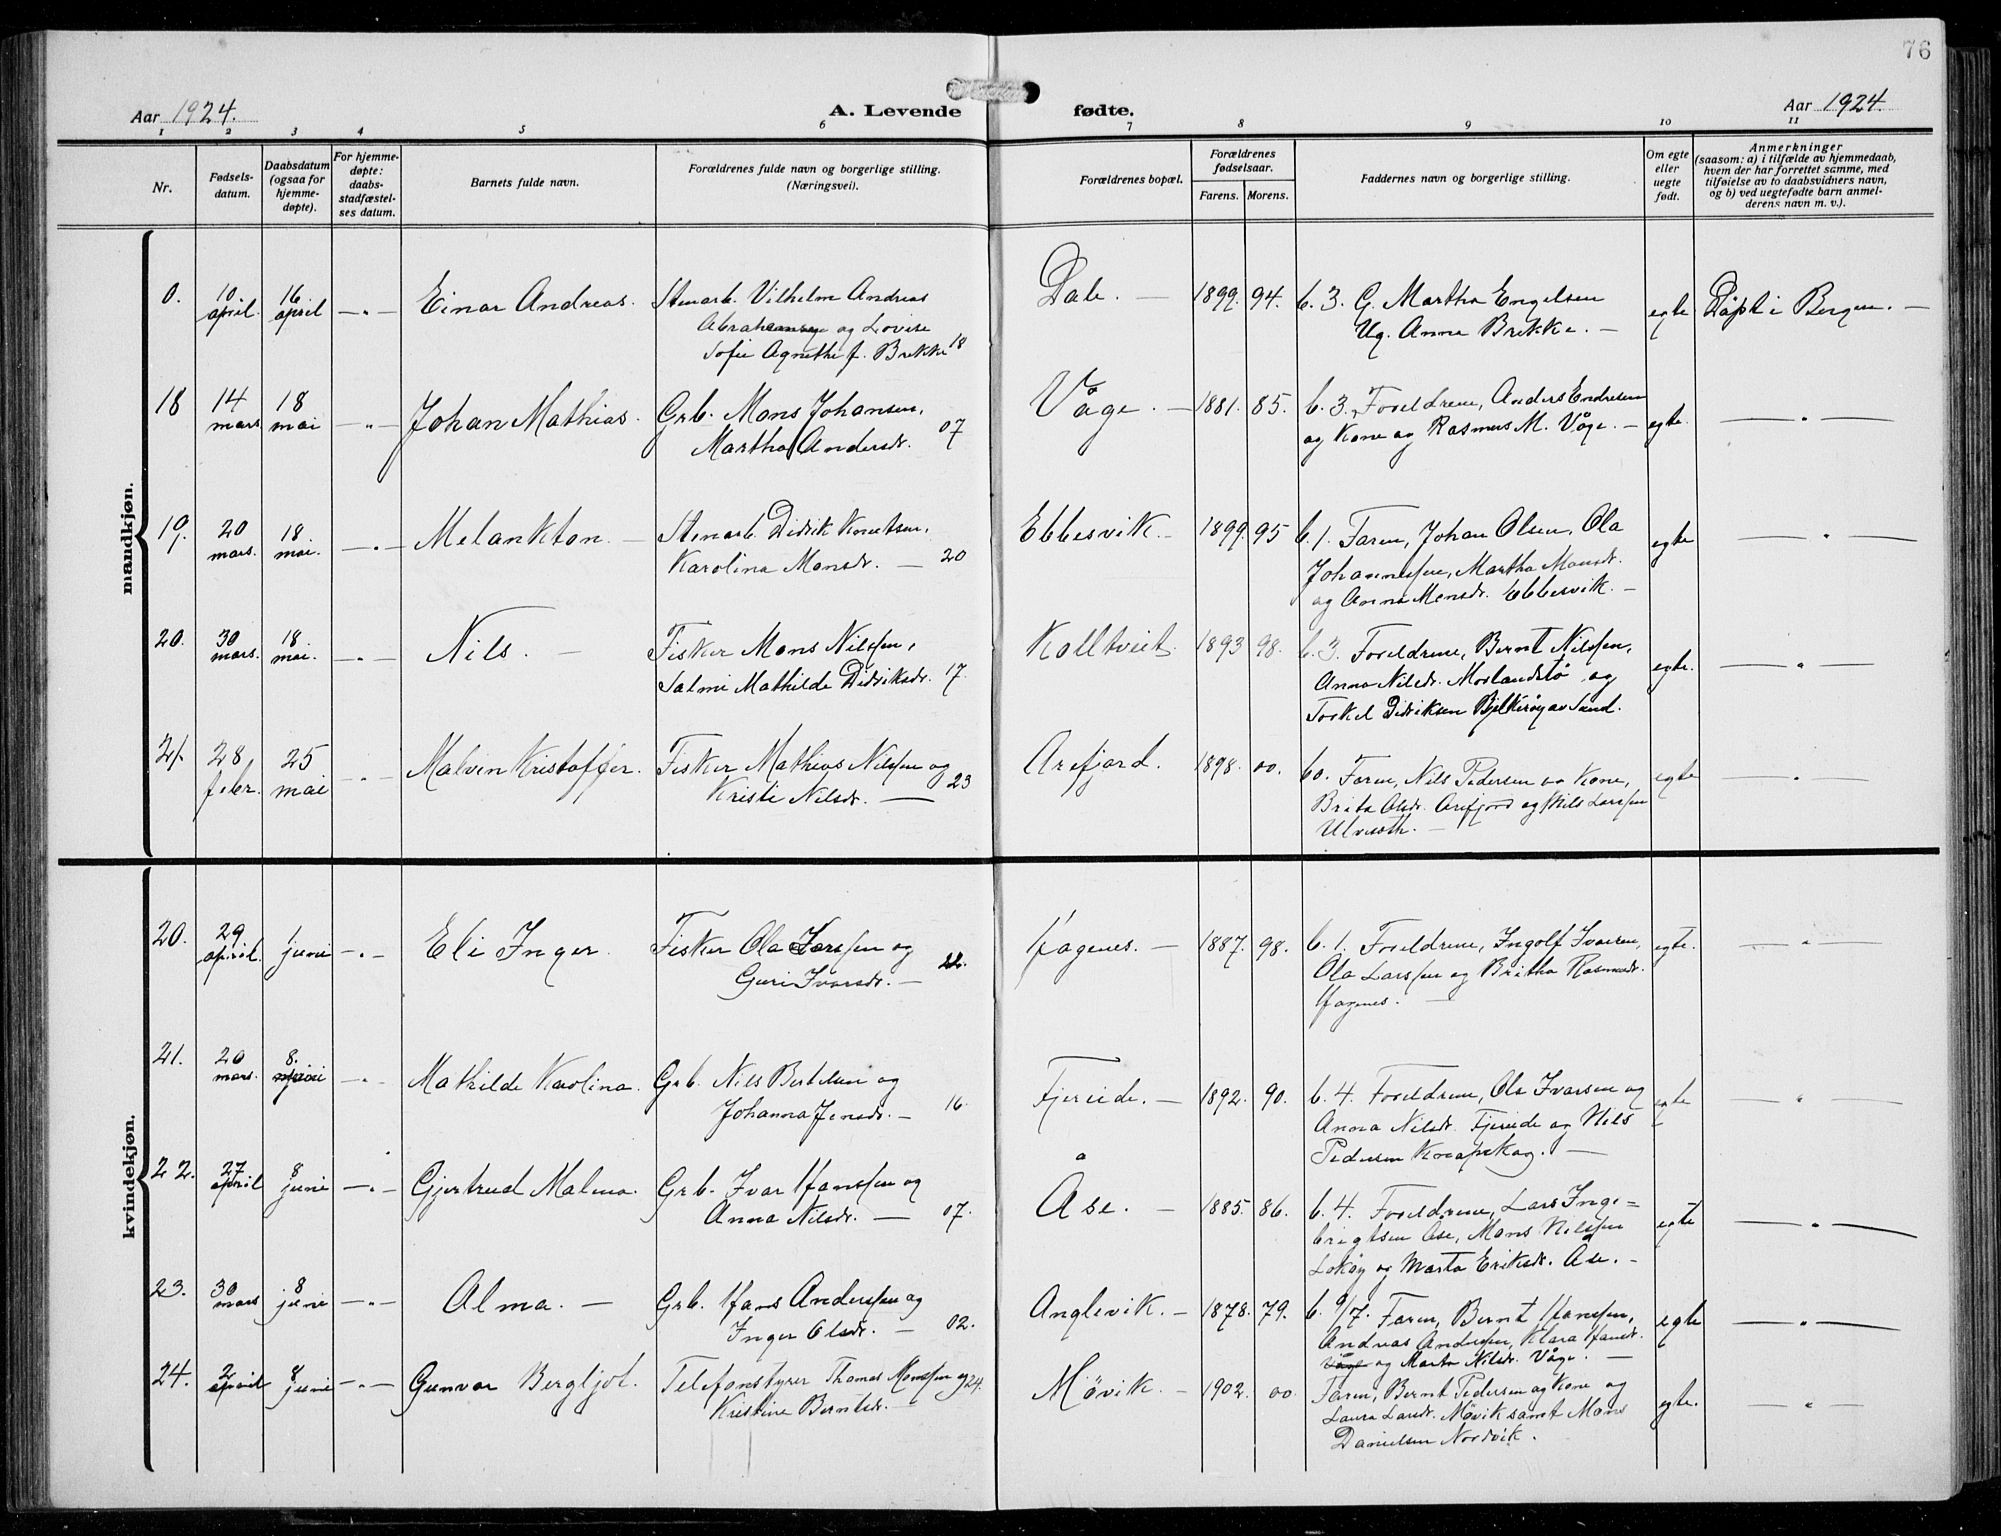 76
Aar 1924.
A. Levende fødte.
Aar 1924.
1 2 3 4 5 6 7 8 9 10 11
Nr.
Fødselsdatum.
Daabsdatum (ogsaa for hjemmedøpte).
For hjemmedøpte: daabsstadfæstelses datum.
Barnets fulde navn.
Forældrenes fulde navn og borgerlige stilling. (Næringsvei).
Forældrenes bopæl.
Forældrenes fødselsaar.
Farens. Morens.
Faddernes navn og borgerlige stilling.
Om egte eller uegte født.
Anmerkninger
(saasom: a) i tilfælde av hjemmedaab,
hvem der har forrettet samme, med
tilføielse av to daabsvidners navn,
og b) ved uegtefødte barn anmelderens navn m. v.).
mandkjøn.
0. 10 april 16 april — " — Einar Andreas. Stenarb. Vilhelm Andreas
Abrahamsen og Lovise
Sofie Agnethe f. Brekke 18
Dale. — 1899. 94. b. 3. G. Martha Engelsen
Ug. Anna Brekke. — egte. Døpt i Bergen. —
18 14 mars 18 mai — " — Johan Mathias. Grb. Mons Johansen,
Martha Andersdr. 07
Våge. — 1881. 85. b. 3. Foreldrene, Anders Endresen
og Kone og Rasmus M. Våge. — egte. — " —
19. 20 mars. 18. mai. — " — Melankton. — Stenarb. Didrik Knutsen,
Karolina Monsdr. — 20
Ebbesvik. — 1899. 95 b. 1. Faren, Johan Olsen, Ola
Johannessen, Martha Monsdr.
og Anna Monsdr. Ebbesvik. — egte — " —
20. 30 mars. 18 mai. — " — Nils. — Fisker Mons Nilssen,
Salmi Mathilde Didriksdr. 17.
Kolltveit. 1893 98. b. 3. Foreldrene, Bernt Nilssen,
Anna Nilsdr. Morlandstø og
Torkel Didriksen Bjelkerøy av Sund. egte. — " —
21. 28 febr. 25 mai — " — Malvin Kristoffer. Fisker Mathias Nilssen og
Kristi Nilsdr. — 23
Arefjord. 1898. 00. b0. Faren, Nils Pedersen og Kone,
Brita Olsdr. Arefjord og Nils Larssen
Ulveseth. — egte — " —
kvindekjøn.
20. 29 april 1 juni — " — Eli Inger. Fisker Ola Larssen og
Guri Ivarsdr. —
Hagenes. — 1887. 98. b. 1. Foreldrene, Ingolf Iversen,
Ola Larssen og Britha Rasmusdr.
Hagenes. — egte. — " —
21. 20 mars. 8. juni — " — Mathilde Karolina. Grb. Nils Bertelsen og
Johanna Jensdr. — 16.
Fjereide. — 1892. 90. b. 4. Foreldrene, Ola Ivarsen og
Anna Nilsdr. Fjereide og Nils
Pedersen Knapskog. — egte — " —
22. 27 april 8 juni — " — Gjertrud Malena. Grb. Ivar Hanssen og
Anna Nilsdr. — 07.
Åse. — 1885. 86. b. 4. Foreldrene, Lars Inge=
brigtsen Åse, Mons Nilssen
Lokøy og Marta Eriksdr. Åse. — egte — " —
23. 30 mars 8 juni — " — Alma. — Grb. Hans Anderssen og
Inger Olsdr. — 02.
Anglevik. — 1878. 79. b. 9/7. Faren, Bernt Hanssen,
Andreas Anderssen, Klara Hansdr.
Våge og Marta Nilsdr. Våge. — egte — " —
24. 2 april 8 juni — " — Gunvor Bergljot. Telefonstyrer Thomas Monssen og 24.
Kristine Berntsdr. —
Møvik. — 1902. 00. Faren, Bernt Pedersen og Kone og
Laura Larsdr. Møvik samt Mons
Danielsen Nordvik. egte. — " —